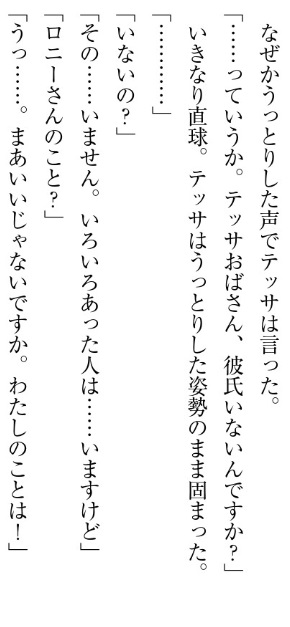 なぜかうっとりした声でテッサは言った。
「……っていうか。テッサおばさん、彼氏いないんですか?」
いきなり直球。テッサはうっとりした姿勢のまま固まった。
「…………」
「いないの?」
「その……いません。いろいろあった人は……いますけど」
「ロニーさんのこと?」
「うっ……。まあいいじゃないですか。わたしのことは!」